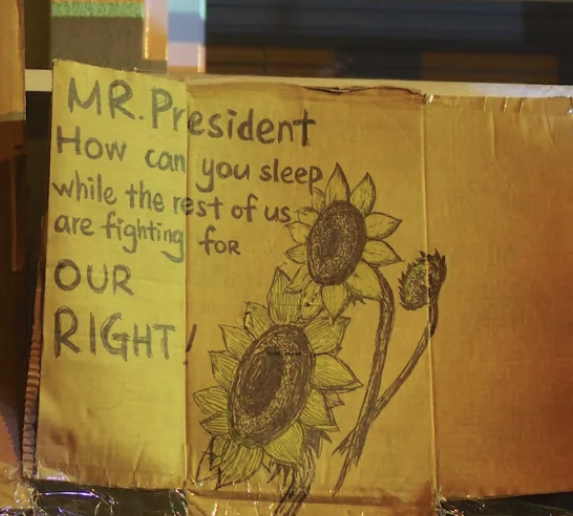 MR. President
How can you sleep
while the rest of us
are fighting for
OUR
RIGHT!